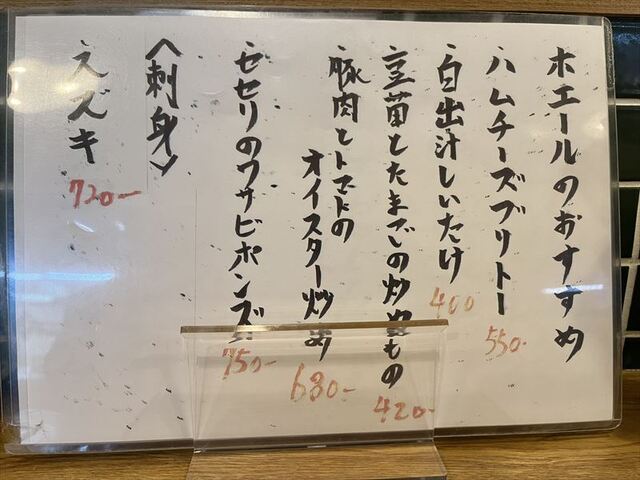 ホエールのおすすめ
ハムチーズブリトー
550-
白出汁しいたけ
400
豆苗とたまごの炒めもの
420-
豚肉とトマトの
オイスター炒め
680-
セセリのワサビポンズ
750-
〈刺身〉
スズキ
720-